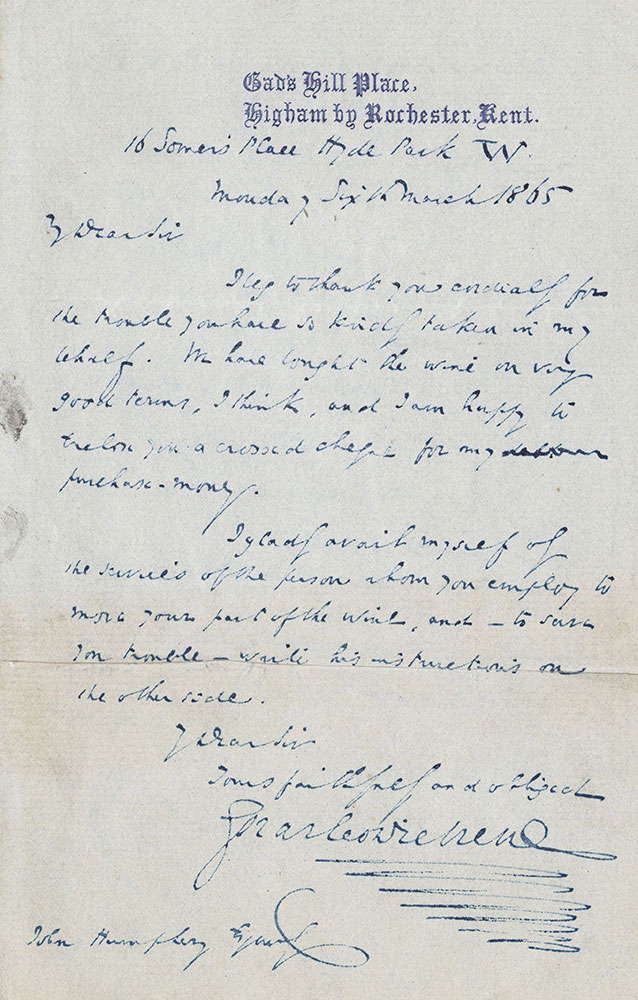 Gad's Hill Place,
Higham by Rochester, Kent.
16 Somers Place Hyde Park W.
Monday Sixth March 1865
My Dear Sir
I beg to thank you cordially for
the trouble you have so kindly taken in my
behalf. We have bought the wine on very
good terms, I think, and I am happy to
enclose you a crossed cheque for my
purchase-money.
I gladly avail myself of
the services of the person whom you employ to
move your part of the wine, and – to save
you trouble – write his instructions on
the other side.
My Dear Sir
Yours faithfully and obliged
Charles Dickens
John Humphery Esquire